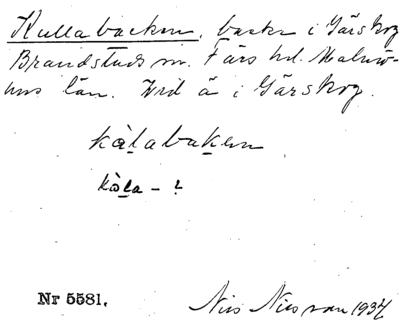 Kullabacken, backe i Gårskog
Brandstads sn. Färs hd. Malmö-
hus län. Vid å i Gårskog.
kàlabaken
kòla - ?
Nr 5581.
Nils Nilsson 1934